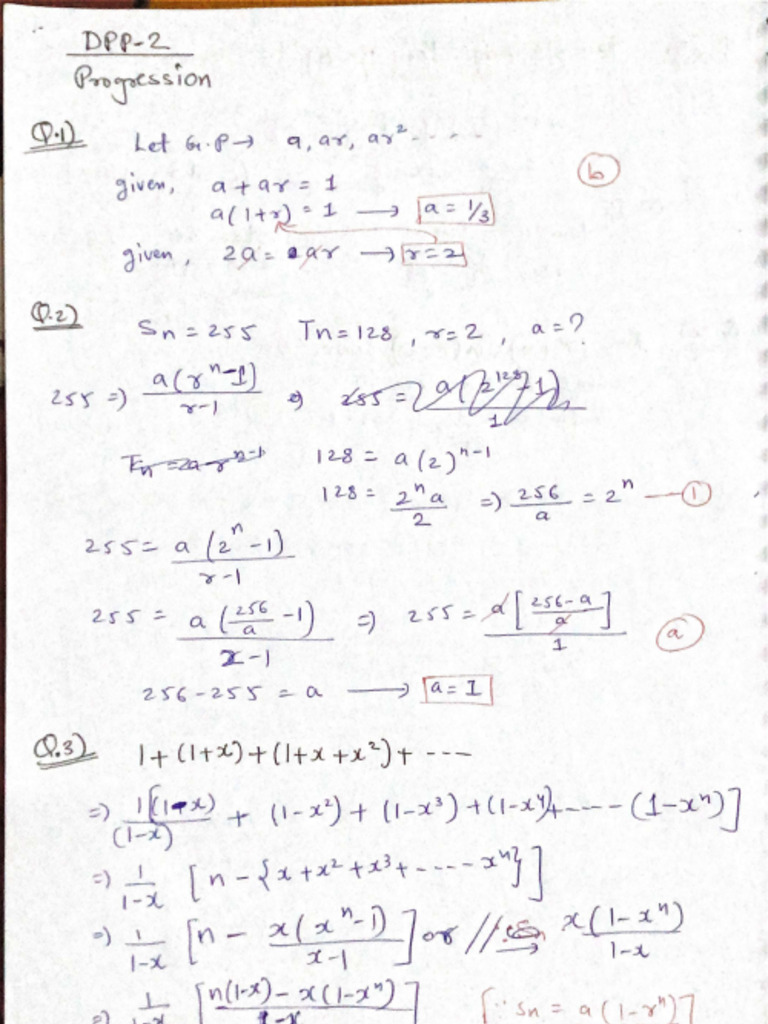 DPP-2
Progression
Q.1) Let G.P → a, ar, ar² ----
given, a + ar = 1
a(1+r) = 1 → a = 1/3
(b)
given, 2a = ar → r = 2
Q.2) Sn = 255 Tn = 128, r = 2, a = ?
255 ⇒ a(rⁿ-1)/r-1 ⇒ 255 = a(2¹²⁸-1)/1
Tn = 2a rⁿ⁻¹ 128 = a(2)ⁿ⁻¹
128 = 2ⁿa/2 ⇒ 256/a = 2ⁿ — ①
255 = a(2ⁿ-1)/r-1
255 = a(256/a -1)/2-1 ⇒ 255 = a[256-a/a]/1
(a)
256-255 = a → a = 1
Q.3) 1+(1+x)+(1+x+x²)+ ---
⇒ 1[(1-x)/(1-x) + (1-x²) + (1-x³) + (1-x⁴)+ ---- (1-xⁿ)]
⇒ 1/1-x [n-{x+x²+x³+ ---- xⁿ}]
⇒ 1/1-x [n - x(xⁿ-1)/x-1] or // x(1-xⁿ)/1-x
⇒ 1/1-x [n(1-x)-x(1-xⁿ)/1-x] [∵ Sn = a(1-rⁿ)]